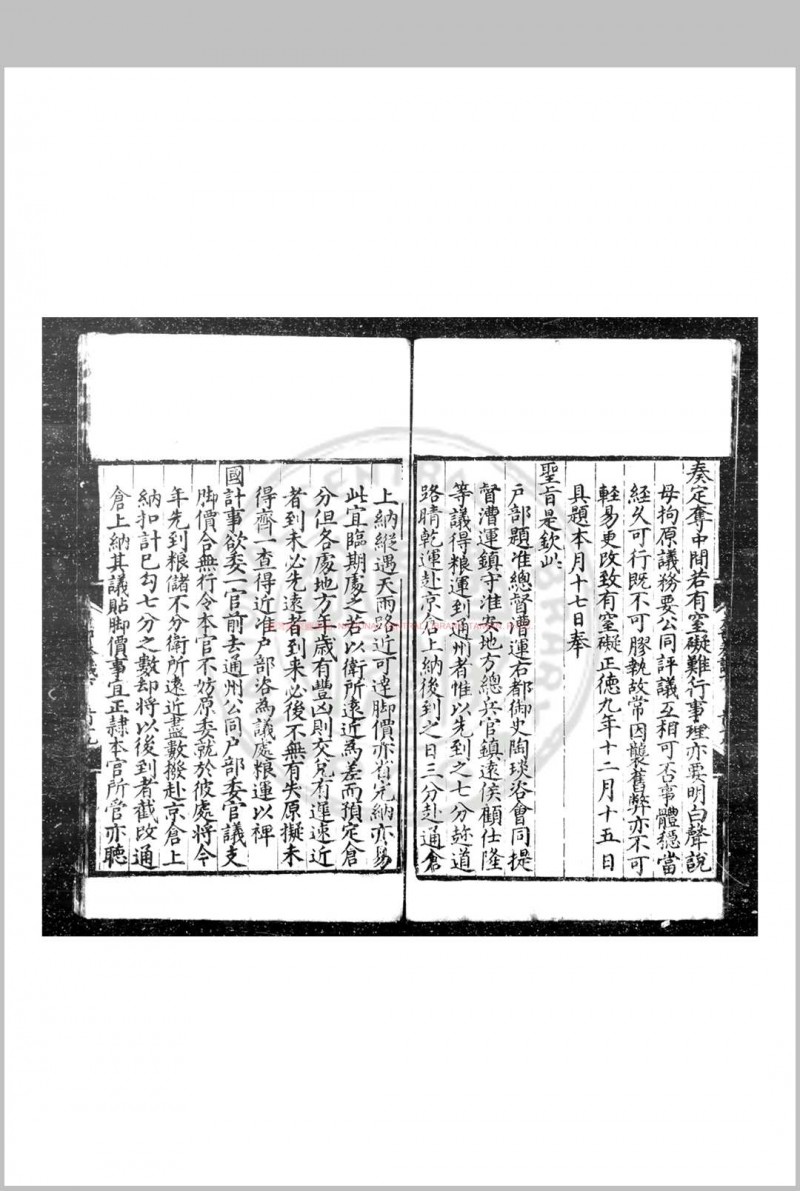 奏定奪中間若有窒礙難行事理亦要明白聲說
毋拘原議務要公同評議互相可否事體穩當
經久可行既不可膠執故常因襲舊弊亦不可
輕易更改致有窒礙正德九年十二月十五日
具題本月十七日奉
聖旨是欽此
戶部題准總督漕運右都御史陶琰咨會同提
督漕運鎮守淮安地方總兵官鎮遠侯顧仕隆
等議得粮運到通州者惟以先到之七分趂道
路晴乾運赴京倉上納後到之日三分赴通倉
上納縱遇天雨路近可達脚價亦省完納亦易
此宜臨期處之若以衛所遠近為差而預定倉
分但各處地方年歲有豐凶則交兌有遲速近
者到未必先遠者到来必後不無有失原擬未
得齊一查得近准户部咨為議處粮運以裨
國計事欲委一官前去通州公同户部委官議支
脚價合無行令本官不妨原委就於彼處將今
年先到粮儲不分衛所遠近盡數撥赴京倉上
納扣計已勾七分之數却將以後到者截改通
倉上納其議貼脚價事宜正隷本官所管亦聽